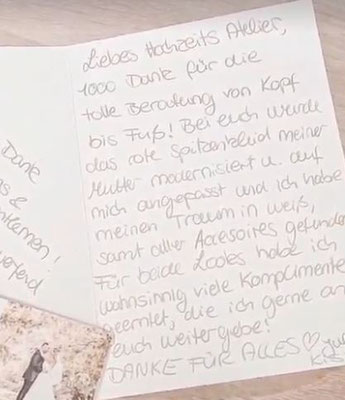 Liebes Hochzeits Atelier,
1000 Dank für die
tolle Beratung von Kopf
bis Fuß! Bei euch wurde
das rote Spitzenkleid meiner
Mutter modernisiert u. auf
mich angepasst und ich habe
meinen Traum in weiß,
samt aller Accesoires gefunden
Für beide Looks habe ich
wahnsinnig viele Komplimente
geerntet, die ich gerne an
euch weitergebe!
DANKE FÜR ALLES ♡
Dank